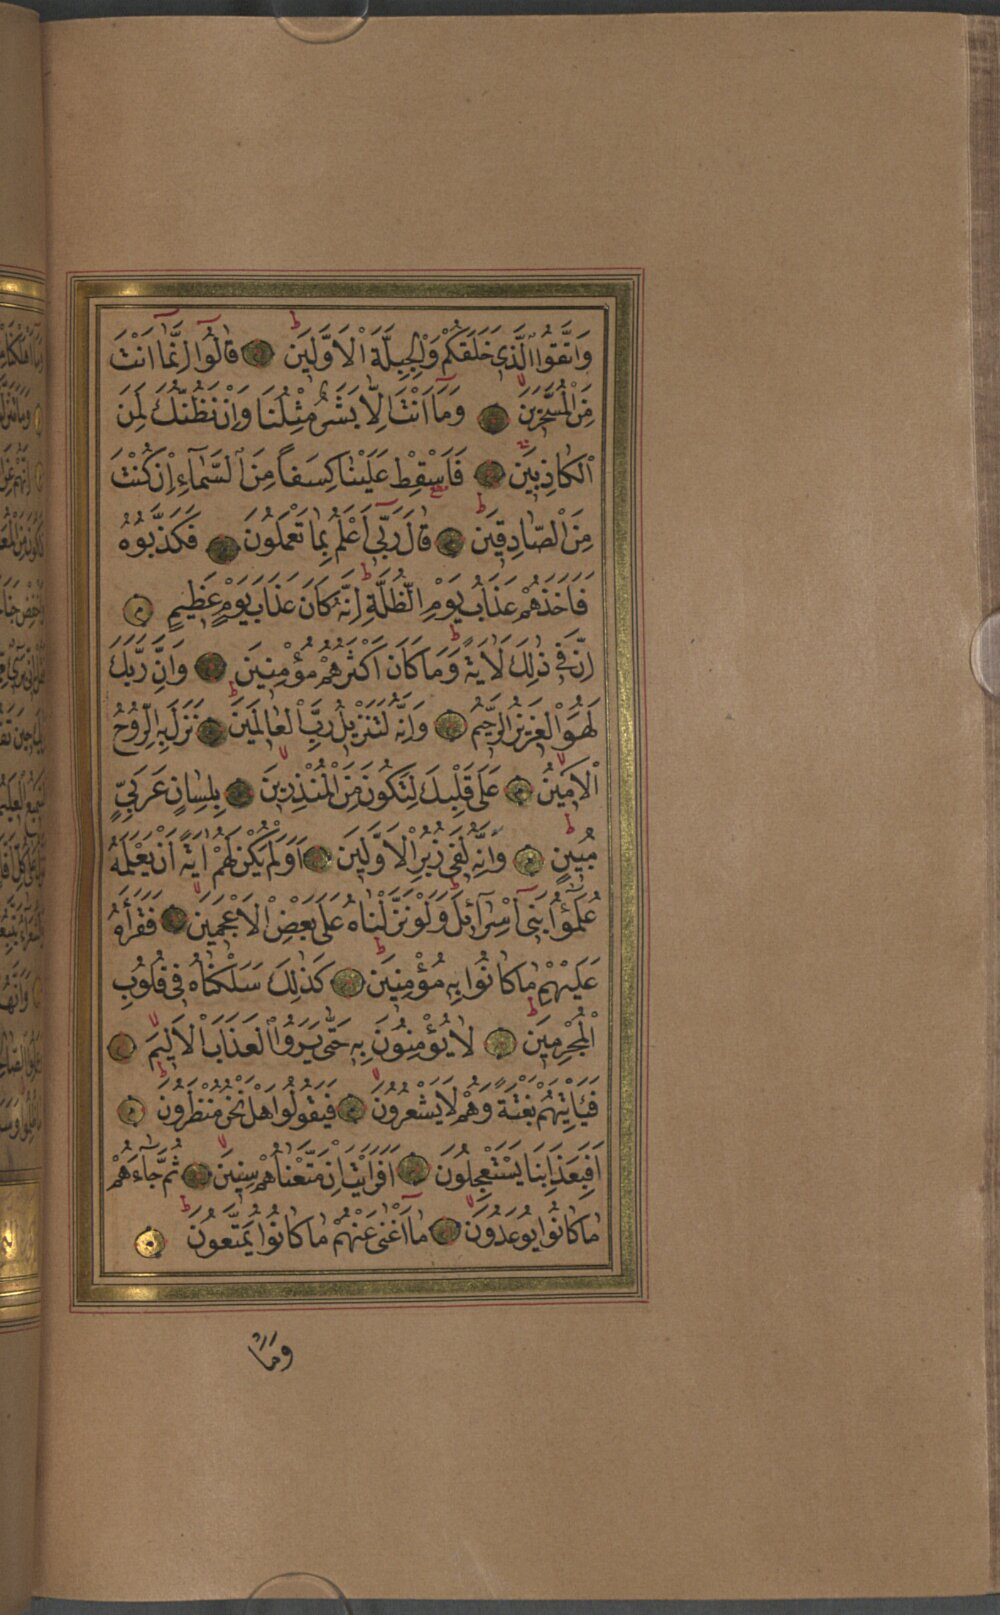 وَاتَّقُوا الَّذِى خَلَقَكُمْ وَالْجِبِلَّةَ الْاَوَّلِينَ قَالُٓوا اِنَّمَٓا اَنْتَ
مِنَ الْمُسَحَّرِينَ وَمَٓا اَنْتَ اِلَّا بَشَرٌ مِثْلُنَا وَاِنْ نَظُنُّكَ لَمِنَ
الْكَاذِبِينَ فَاَسْقِطْ عَلَيْنَا كِسَفاً مِنَ السَّمَٓاءِ اِنْ كُنْتَ
مِنَ الصَّادِقِينَ قَالَ رَبِّٓى اَعْلَمُ بِمَا تَعْمَلُونَ فَكَذَّبُوهُ
فَاَخَذَهُمْ عَذَابُ يَوْمِ الظُّلَّةِ اِنَّهُ كَانَ عَذَابَ يَوْمٍ عَظِيمٍ
اِنَّ فِى ذٰلِكَ لَاٰيَةً وَمَا كَانَ اَكْثَرُهُمْ مُؤْمِنِينَ وَاِنَّ رَبَّكَ
لَهُوَ الْعَزِيزُ الرَّحِيمُ وَاِنَّهُ لَتَنْزِيلُ رَبِّ الْعَالَمِينَ نَزَلَ بِهِ الرُّوحُ
الْاَمِينُ عَلٰى قَلْبِكَ لِتَكُونَ مِنَ الْمُنْذِرِينَ بِلِسَانٍ عَرَبِىٍّ
مُبِينٍ وَاِنَّهُ لَفِى زُبُرِ الْاَوَّلِينَ اَوَلَمْ يَكُنْ لَهُمْ اٰيَةً اَنْ يَعْلَمَهُ
عُلَمٰٓؤُا بَنِٓى اِسْرَٓائِلَ وَلَوْ نَزَّلْنَاهُ عَلٰى بَعْضِ الْاَعْجَمِينَ فَقَرَاَهُ
عَلَيْهِمْ مَا كَانُوا بِهِ مُؤْمِنِينَ كَذٰلِكَ سَلَكْنَاهُ فِى قُلُوبِ
الْمُجْرِمِينَ لَا يُؤْمِنُونَ بِهِ حَتّٰى يَرَوُا الْعَذَابَ الْاَلِيمَ
فَيَاْتِيَهُمْ بَغْتَةً وَهُمْ لَا يَشْعُرُونَ فَيَقُولُوا هَلْ نَحْنُ مُنْظَرُونَ
اَفَبِعَذَابِنَا يَسْتَعْجِلُونَ اَفَرَاَيْتَ اِنْ مَتَّعْنَاهُمْ سِنِينَ ثُمَّ جَٓاءَهُمْ
مَا كَانُوا يُوعَدُونَ مَٓا اَغْنٰى عَنْهُمْ مَا كَانُوا يُمَتَّعُونَ
وَمَا